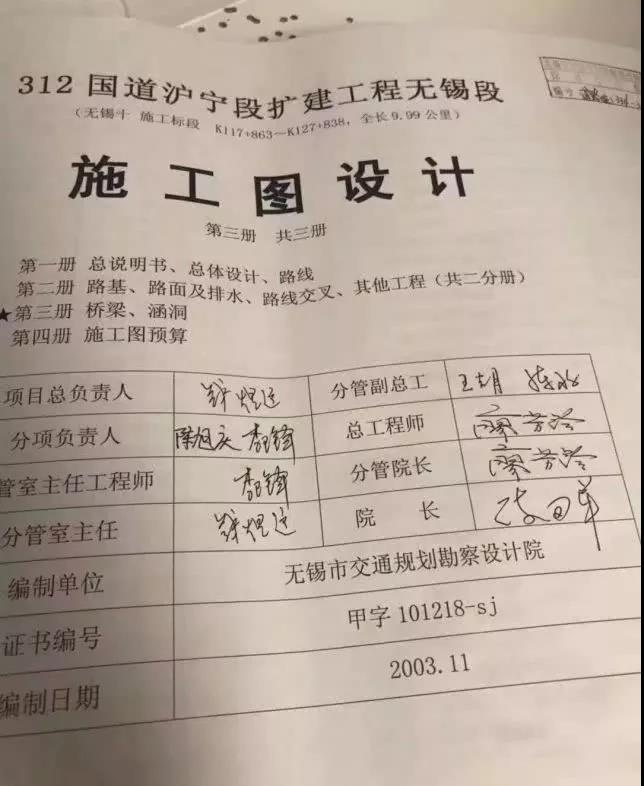 312国道沪宁段扩建工程无锡段
（无锡十 施工标段 K117+863—K127+838，全长9.99公里）
施工图设计
第三册 共三册
第一册 总说明书、总体设计、路线
第二册 路基、路面及排水、路线交叉、其他工程（共二分册）
★第三册 桥梁、涵洞
第四册 施工图预算
项目总负责人 分管副总工
分项负责人 陈旭庆 李锋 总工程师 廖芳洽
管室主任工程师 李锋 分管院长 廖芳洽
分管室主任 院 长
编制单位 无锡市交通规划勘察设计院
证书编号 甲字101218-sj
编制日期 2003.11